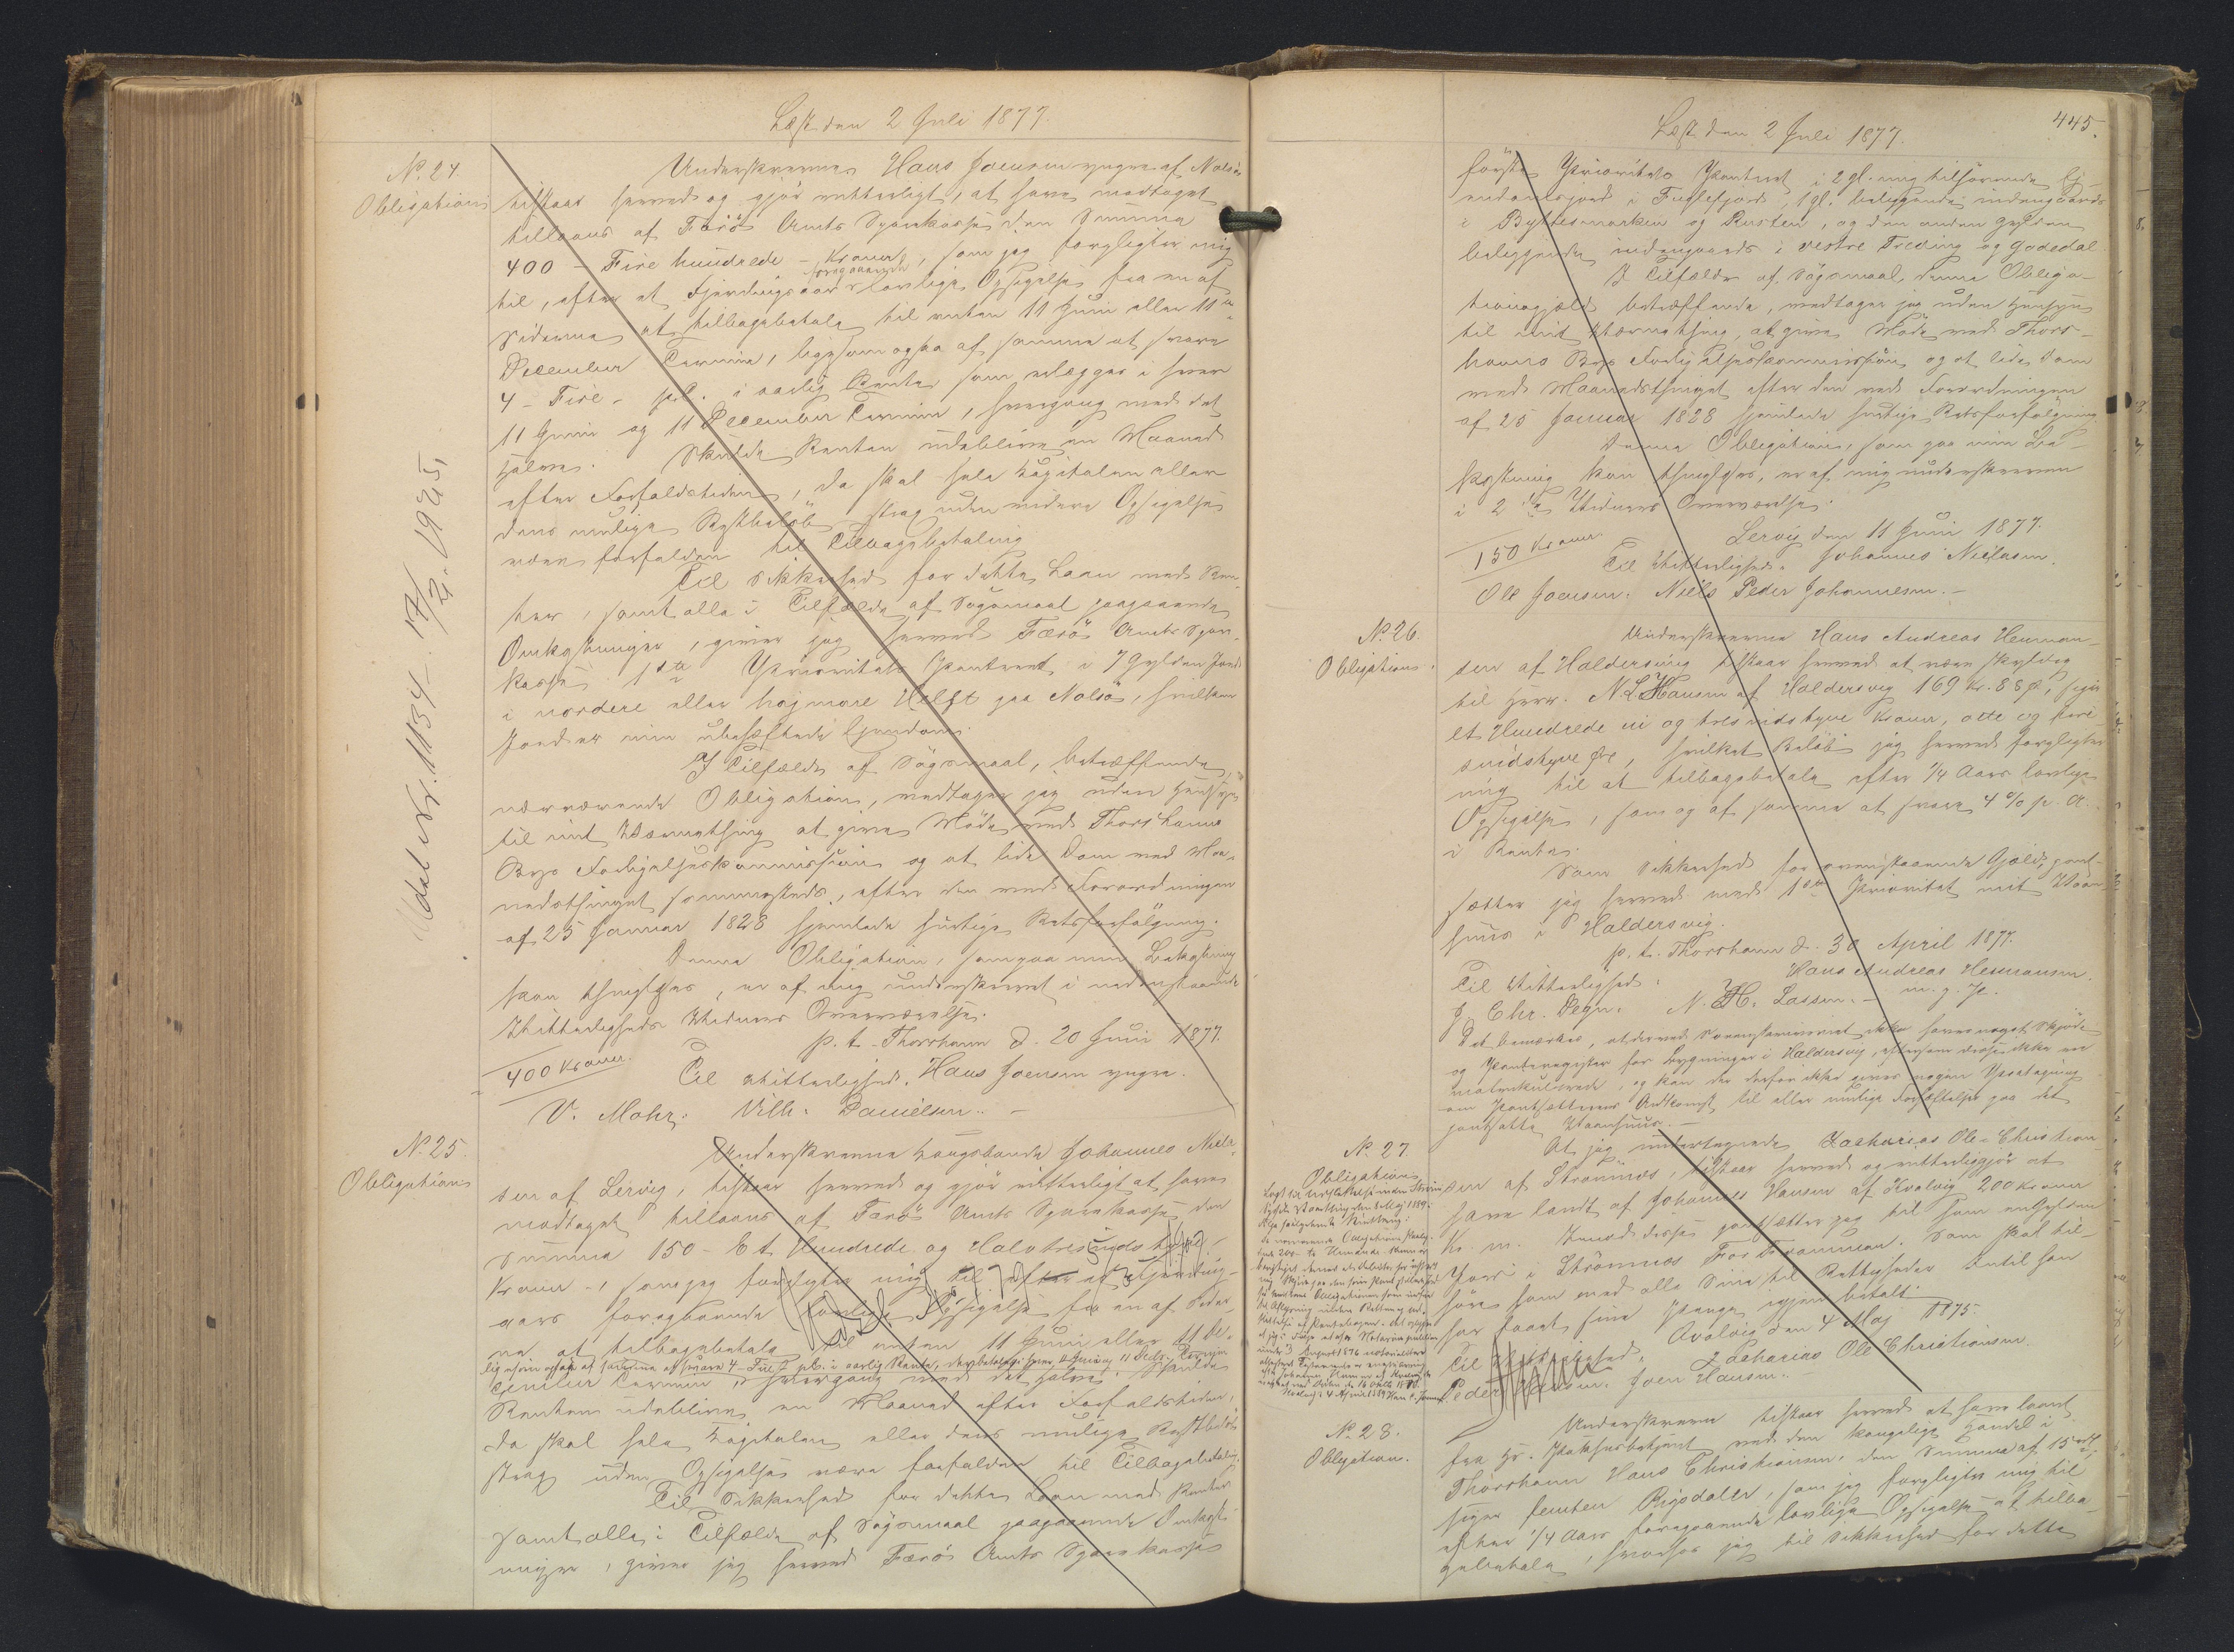 Læst den 2 Juli 1877.
No. 24.
Obligation
Underskrevne Hans Joensen yngre af Nolsö
tilstaar herved og gjör vitterligt, at have modtaget
tillaans af Færö Amts Sparekasse den Summa
400 - Fire hundrede - Kroner, som jeg forpligter mig
til, efter et Fjerdingaars foregaaende lovlig Opsigelse fra en af
Siderne at tilbagebetale til enten 11 Juni eller 11te
December Termin, ligesom ogsaa af samme at svare
4 - Fire - pCt. i aarlig Rente som erlægges i hver
11 Juni og 11 December Termin, hvergang med det
Halve. Skulde Renten udeblive en Maaned
efter Forfaldstiden, da skal hele Kapitalen eller
dens mulige Restbelöb strax uden videre Opsigelse
være forfalden til Tilbagebetaling
Til Sikkerhed for dette Laan med Ren-
ter, samt alle i Tilfælde af Sögsmaal paagaaende
Omkostninger, giver jeg herved Færö Amts Spare-
kasse 1ste Prioritets Panteret i 7 Gylden Jord
i nordere eller højmore Helft paa Nolsö, hvilken
Jord er min ubehæftede Ejendom.
I Tilfælde af Sögsmaal, betræffende
nærværende Obligation, vedtager jeg uden Hensyn
til mit Værnething at give Möde ved Thorshavns
Byes Forligelseskommission og at lide Dom ved Maa-
nedsthinget sammesteds, efter den ved Forordningen
af 25 Januar 1828 hjemlede hurtige Retsforfölgning.
Denne Obligation, som paa min Bekostning
kan thinglyses, er af mig underskrevet i nedenstaaende
Vitterligheds Vidners Overværelse.
p. t. Thorshavn d. 20 Juni 1877.
400 Kroner.
Til Vitterlighed. Hans Joensen yngre.
V. Mohr. Vilh. Danielsen. -
Udslettet Nr. 1134 - 17/2. 1925.
No. 25.
Obligation
Underskrevne Kongsbonde Johannes Niela-
sen af Lervig, tilstaar herved og gjör vitterligt at have
modtaget tillaans af Færö Amts Sparekasse den
Summa 150 - Et Hundrede og Halvtresindstyve
Kroner -, som jeg forpligter mig til efter et Fjerding-
aars foregaaende lovlig Opsigelse fra en af Sider-
ne at tilbagebetale til enten 11 Juni eller 11 De-
ligesom ogsaa af samme at svare 4 - Fire - pCt. i aarlig Rente, der betales i hver 11 Juni og 11 Decbr. Termin
cember Termin, hvergang med det Halve. Skulde
Renten udeblive en Maaned efter Forfaldstiden,
da skal hele Kapitalen eller dens mulige Restbelöb
strax uden Opsigelse være forfalden til Tilbagebetaling.
Til Sikkerhed for dette Laan med Renter
samt alle i Tilfælde af Sögsmaal paagaaende Omkost-
ninger, giver jeg herved Færö Amts Sparekasse
445.
Læst den 2 Juli 1877.
förste Prioritets Panteret i 2 gl. mig tilhörende Ej-
endomsjord i Fuglefjord, 1 gl. beliggende indengaards
i Byttesmarken og Rusten, og den anden Gylden
beliggende indengaards i vestre Treding og Godedal
I Tilfælde af Sögsmaal denne Obliga-
tionsgjæld betræffende, vedtager jeg uden Hensyn
til mit Værnething, at give Möde ved Thors-
havns Byes Forligelseskommission og at lide Dom
ved Maanedsthinget efter den ved Forordningen
af 25 Januar 1828 hjemlede hurtige Retsforfölgning.
Denne Obligation, som paa min Be-
kostning kan thinglyses, er af mig underskreven
i 2 de Vidners Overværelse.
Lervig den 11 Juni 1877.
150 Kroner.
Til Vitterlighed. Johannes Nielasen.
Ole Joensen. Niels Peder Johannesen. -
No. 26.
Obligation.
Underskrevne Hans Andreas Heuman-
sen af Haldersvig tilstaar herved at være skyldig
til Herr. N. L. Hansen af Haldersvig 169 Kr. 88 Ø., siger
et Hundrede ni og tresindstyve Kroner, otte og fire-
sindstyve Øre, hvilket Belöb jeg herved forpligter
mig til at tilbagebetale efter 1/4 Aars lovlig
Opsigelse, som og af samme at svare 4 % p. A.
i Rente.
Som Sikkerhed for ovenstaaende Gjæld, pant-
sætter jeg herved med 1ste Prioritet mit Vaan-
huus i Haldersvig.
p. t. Thorshavn d. 30 April 1877.
Til Vitterlighed. Hans Andreas Heumansen.
J. Chr. Degn. N. H. Lassen. - m. g. P.
Det bemærkes, at der ved Sorenskriveriet ikke haves noget Skjöde
og Panteregister for Bygninger i Haldersvig, eftersom disse ikke ere
matrikulerede, og kan der derfor ikke gives nogen Paategning
om Pantsætterens Adkomst til eller mulige Behæftelse paa det
pantsatte Vaanhuus. -
No. 27.
Obligation
At jeg undertegnede Zacharias Ole Christian-
sen af Strömnæs, tilstaar herved og vitterliggjör at
have laant af Johannes Hansen af Kvalvig 200 Kroner
Til Vitterlighed, Zacharias Ole Christiansen.
Kvalvig den 4 Maj 1875.
Peder Hansen. Joen Hansen. -
No. 28.
Obligation.
Underskrevne tilstaar herved at have laant
fra Hr. Pakhusbetjent ved den kongelige Handel i
Thorshavn Hans Christiansen, den Summa af 15 rdl.
siger femten Rigsdaler, som jeg forpligter mig til
efter 1/4 Aars foregaaende lovlig Opsigelse at tilba-
gebetale, hvorfor jeg til Sikkerhed for dette